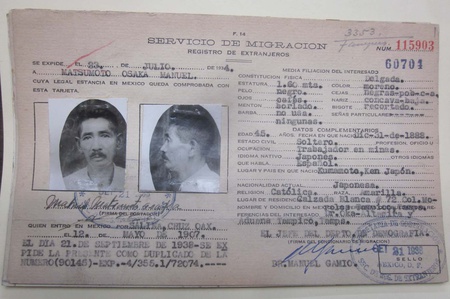 F. 14
SERVICIO DE MIGRACION
REGISTRO DE EXTRANJEROS
3353
NUM. 115903
60704
SE EXPIDE EL 23. DE JULIO. DE 4.
A MATSUMOTO OSAKA MANUEL.
CUYA LEGAL ESTANCIA EN MEXICO QUEDA COMPROBADA CON
ESTA TARJETA.
(FIRMA DEL PORTADOR)
QUIEN ENTRO EN MEXICO POR SALINA CRUZ OAX.
EL 12. DE MAYO DE 1907.
EL DIA 21. DE SEPTIEMBRE DE 1938-SE EX
PIDE LA PRESENTE COMO DUPLICADO DE LA
NUMERO(90145)-EXP.-4/355.1/72074.---
MEDIA FILIACION DEL INTERESADO
CONSTITUCION FISICA Delgada.
ESTATURA 1.60 mts. COLOR moreno.
PELO Negro. CEJAS Negras-pob-s.
OJOS cafés. NARIZ concava-baja.
MENTON oorlado. BIGOTE recortado.
BARBA no usa. SEÑAS PARTICULARES
ningunas.
DATOS COMPLEMENTARIOS
EDAD 45. AÑOS. FECHA EN QUE NACIO Dic-31-de-1888.
ESTADO CIVIL Soltero.
OCUPACION Trabajador en minas.
IDIOMA NATIVO Japones.
OTROS IDIOMAS QUE HABLA Español.
LUGAR Y PAIS EN QUE NACIO Kumamoto, Ken Japón.
NACIONALIDAD ACTUAL Japonesa.
RELIGION Católica. RAZA Amarilla.
LUGAR DE RESIDENCIA Calzada Blanca # 72 Col. Mo-
Tampico, Tamps.
EL JEFE DEL DEPTO. DE DEMOGRAFIA.
DR. MANUEL GAMIO.
SELLO